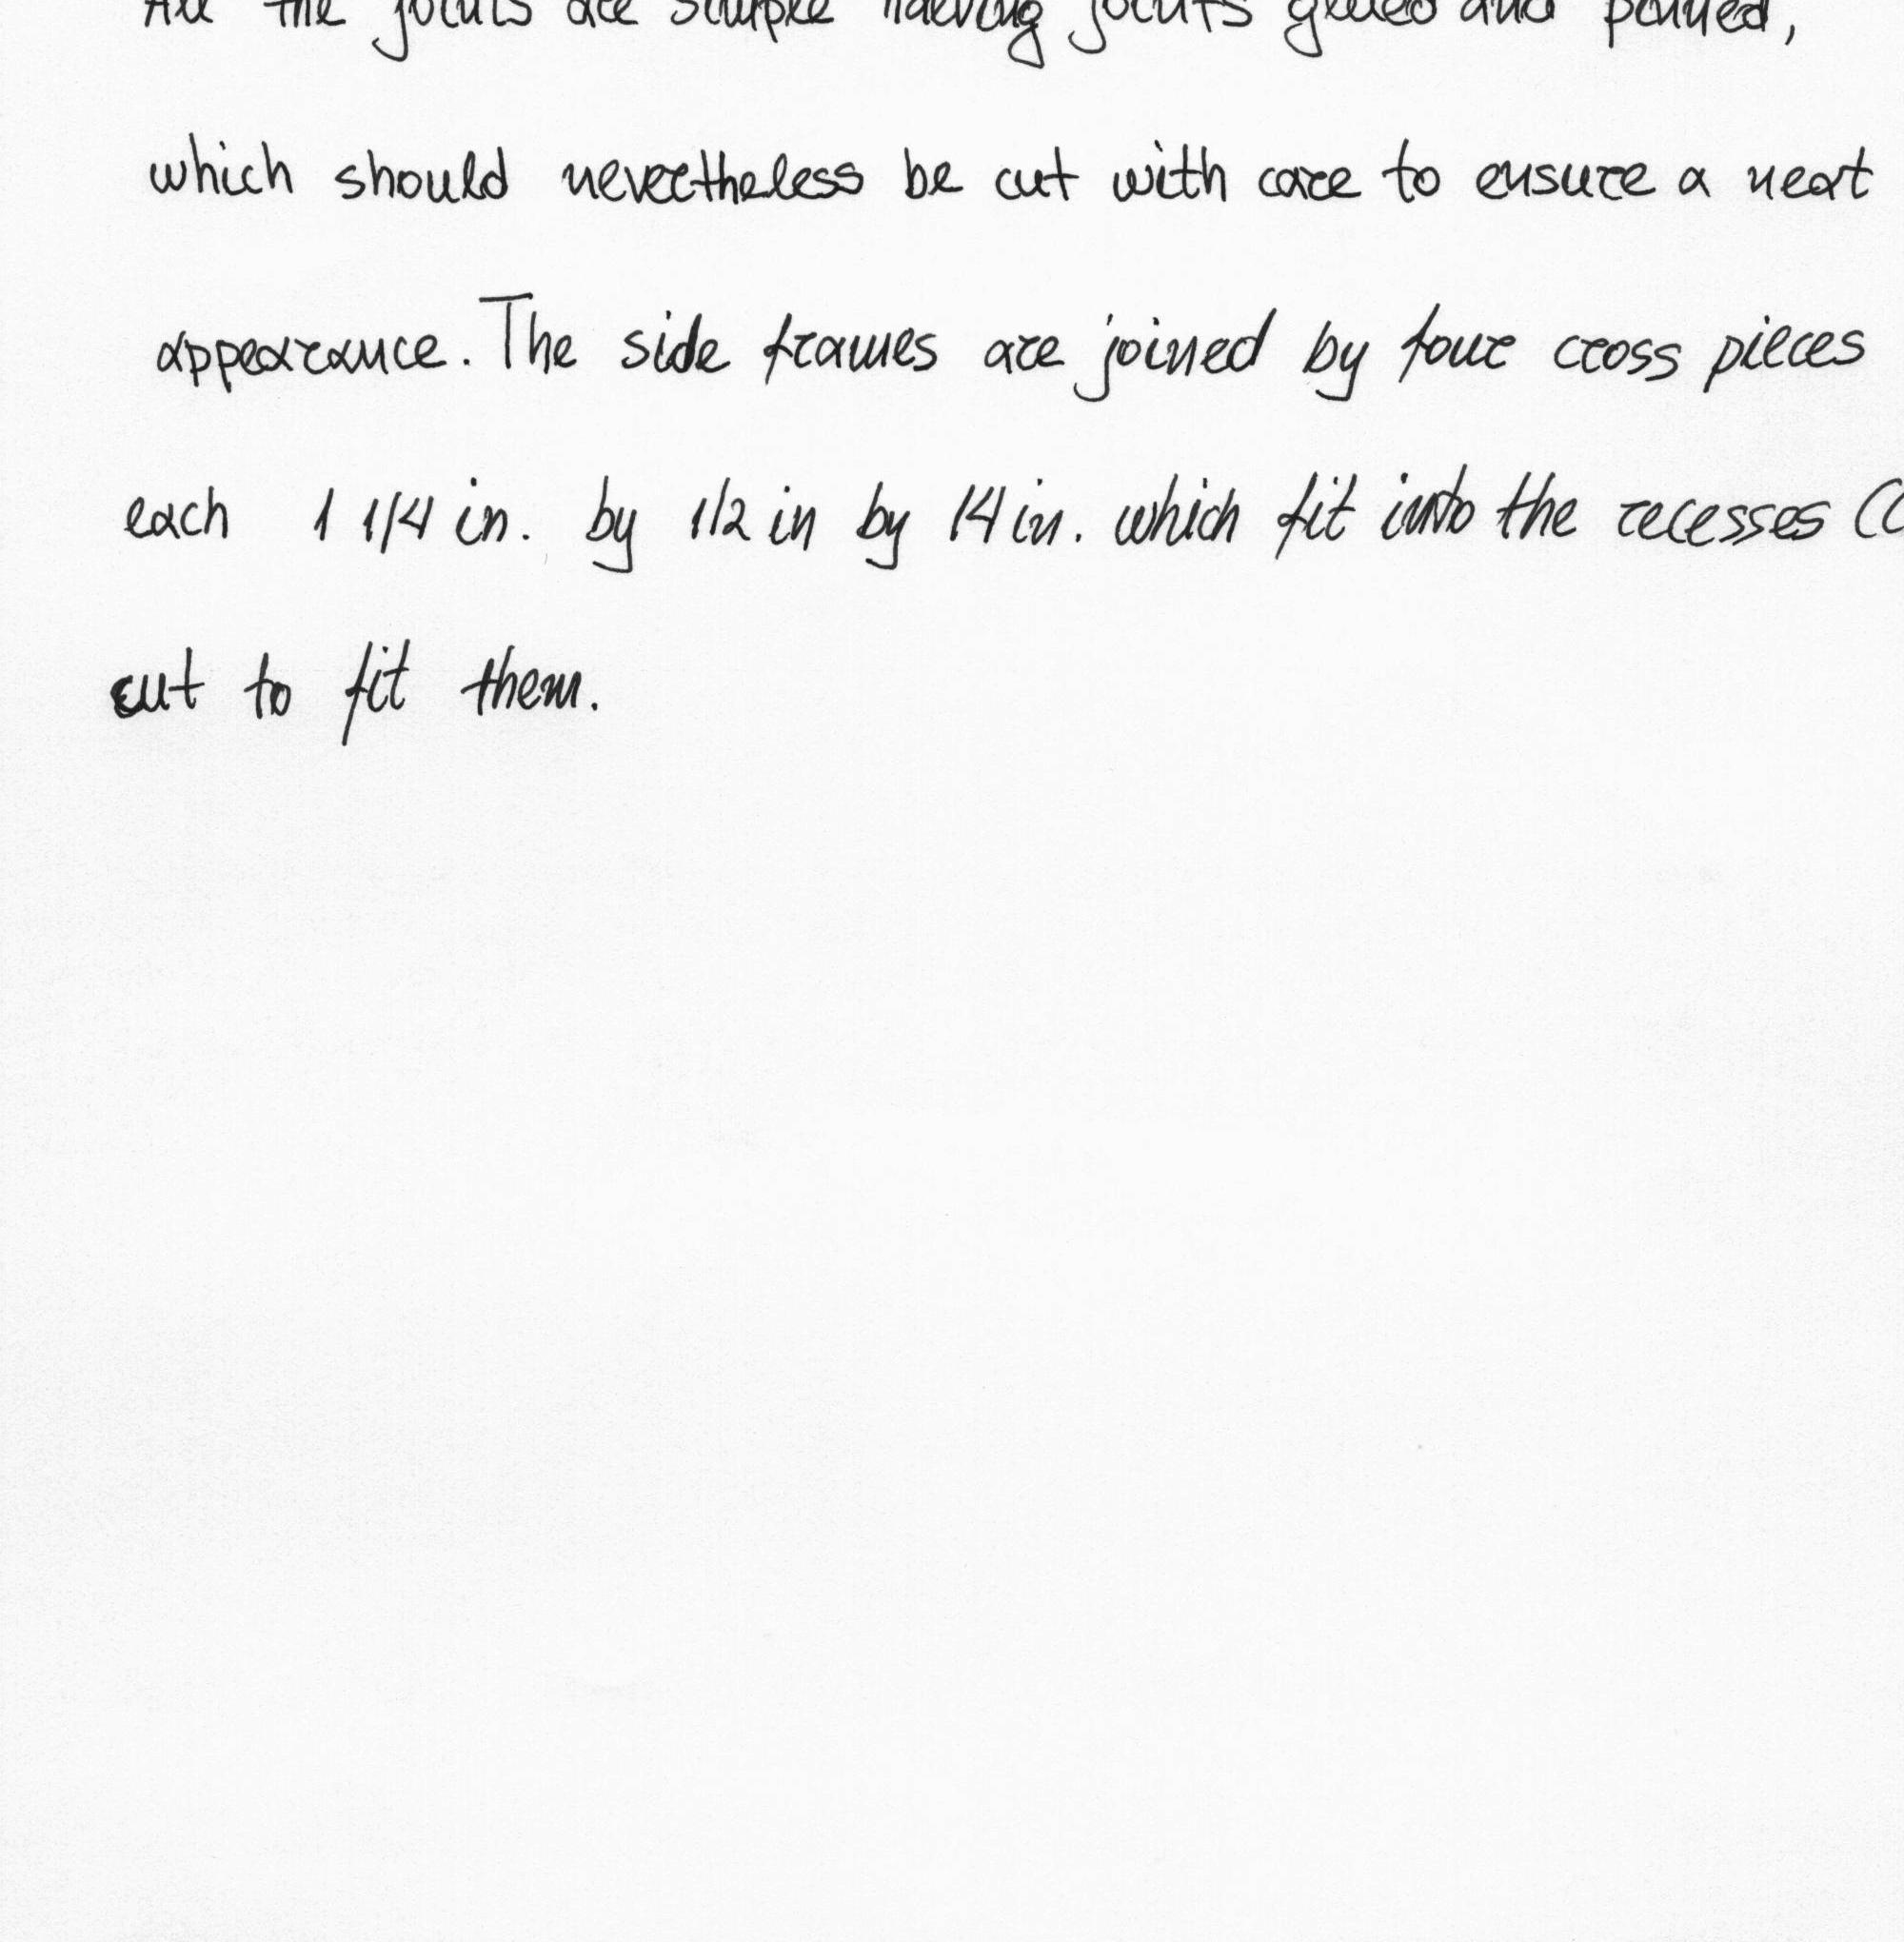 All the joints are simple halving joints glued and pinned,
which should nevertheless be cut with care to ensure a neat
appearance. The side frames are joined by four cross pieces
each 1 1/4 in. by 1/2 in by 14 in. which fit into the recesses
cut to fit them.